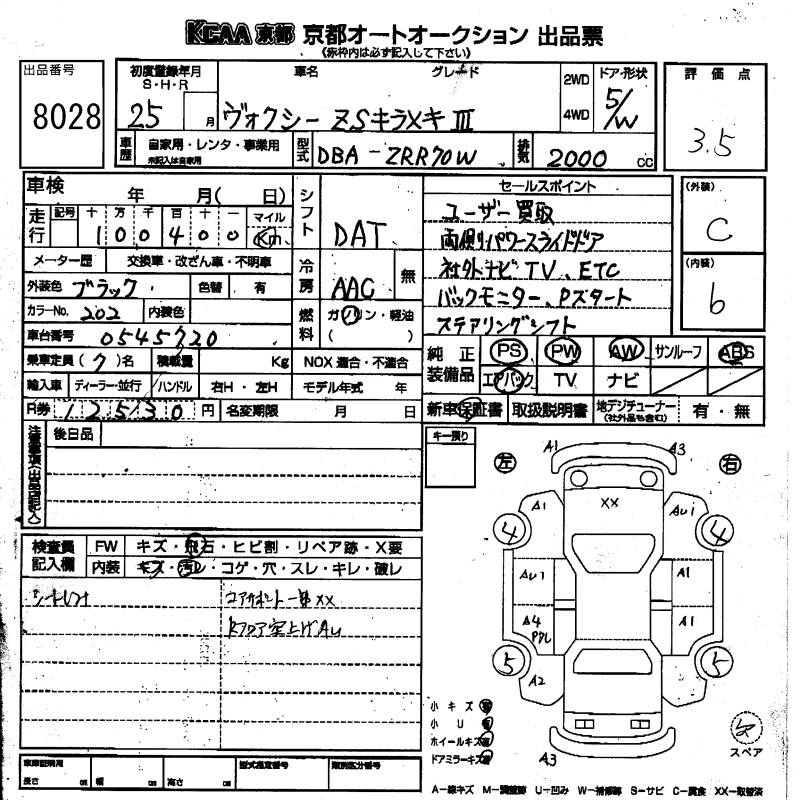 KCAA 京都 京都オートオークション 出品票
(赤枠内は必ず記入して下さい)
出品番号
8028
初度登録年月
S・H・R
25 月
車名 グレード
ヴォクシー ZSキラメキ III
2WD
4WD
ドア・形状
5/W
評価点
3.5
車歴
自家用・レンタ・事業用
未記入は自家用
型式
DBA-ZRR70W
排気
2000 cc
車検 年 月( 日)
走行
記号 十 万 千 百 十 一 マイル
1 0 0 4 0 0 Km
メーター歴 交換車・改ざん車・不明車
外装色 ブラック 色替 有
カラーNo. 202 内装色
車台番号 0545720
乗車定員(7)名 積載量 Kg NOX 適合・不適合
輸入車 ディーラー・並行 ハンドル 右H・左H モデル年式 年
R券 12530円 名変期限 月 日
シフト
DAT
冷房
AAC 無
燃料
ガソリン・軽油
( )
セールスポイント
ユーザー買取
両側パワースライドドア
社外ナビTV、ETC
バックモニター、Pスタート
ステアリングシフト
(外装)
C
(内装)
b
純正装備品
PS PW AW サンルーフ ABS
エアバック TV ナビ
新車保証書 取扱説明書 地デジチューナー(社外品も含む) 有・無
注意事項(出品店記入)
後日品
キー預り
検査員記入欄
FW キズ・飛石・ヒビ割・リペア跡・X要
内装 キズ・汚レ・コゲ・穴・スレ・キレ・破レ
コアサポート一部XX
左 右
A1 A3
XX
A1 AU1
4 4
AU1 A1
A4 A1
5 5
A2
A3
小キズ
小U
ホイールキズ
ドアミラーキズ
スペア
車庫証明用
長さ cm 幅 cm 高さ cm
型式指定番号 類別区分番号
A-線キズ M-調整跡 U-凹み W-補修跡 S-サビ C-腐食 XX-取替済